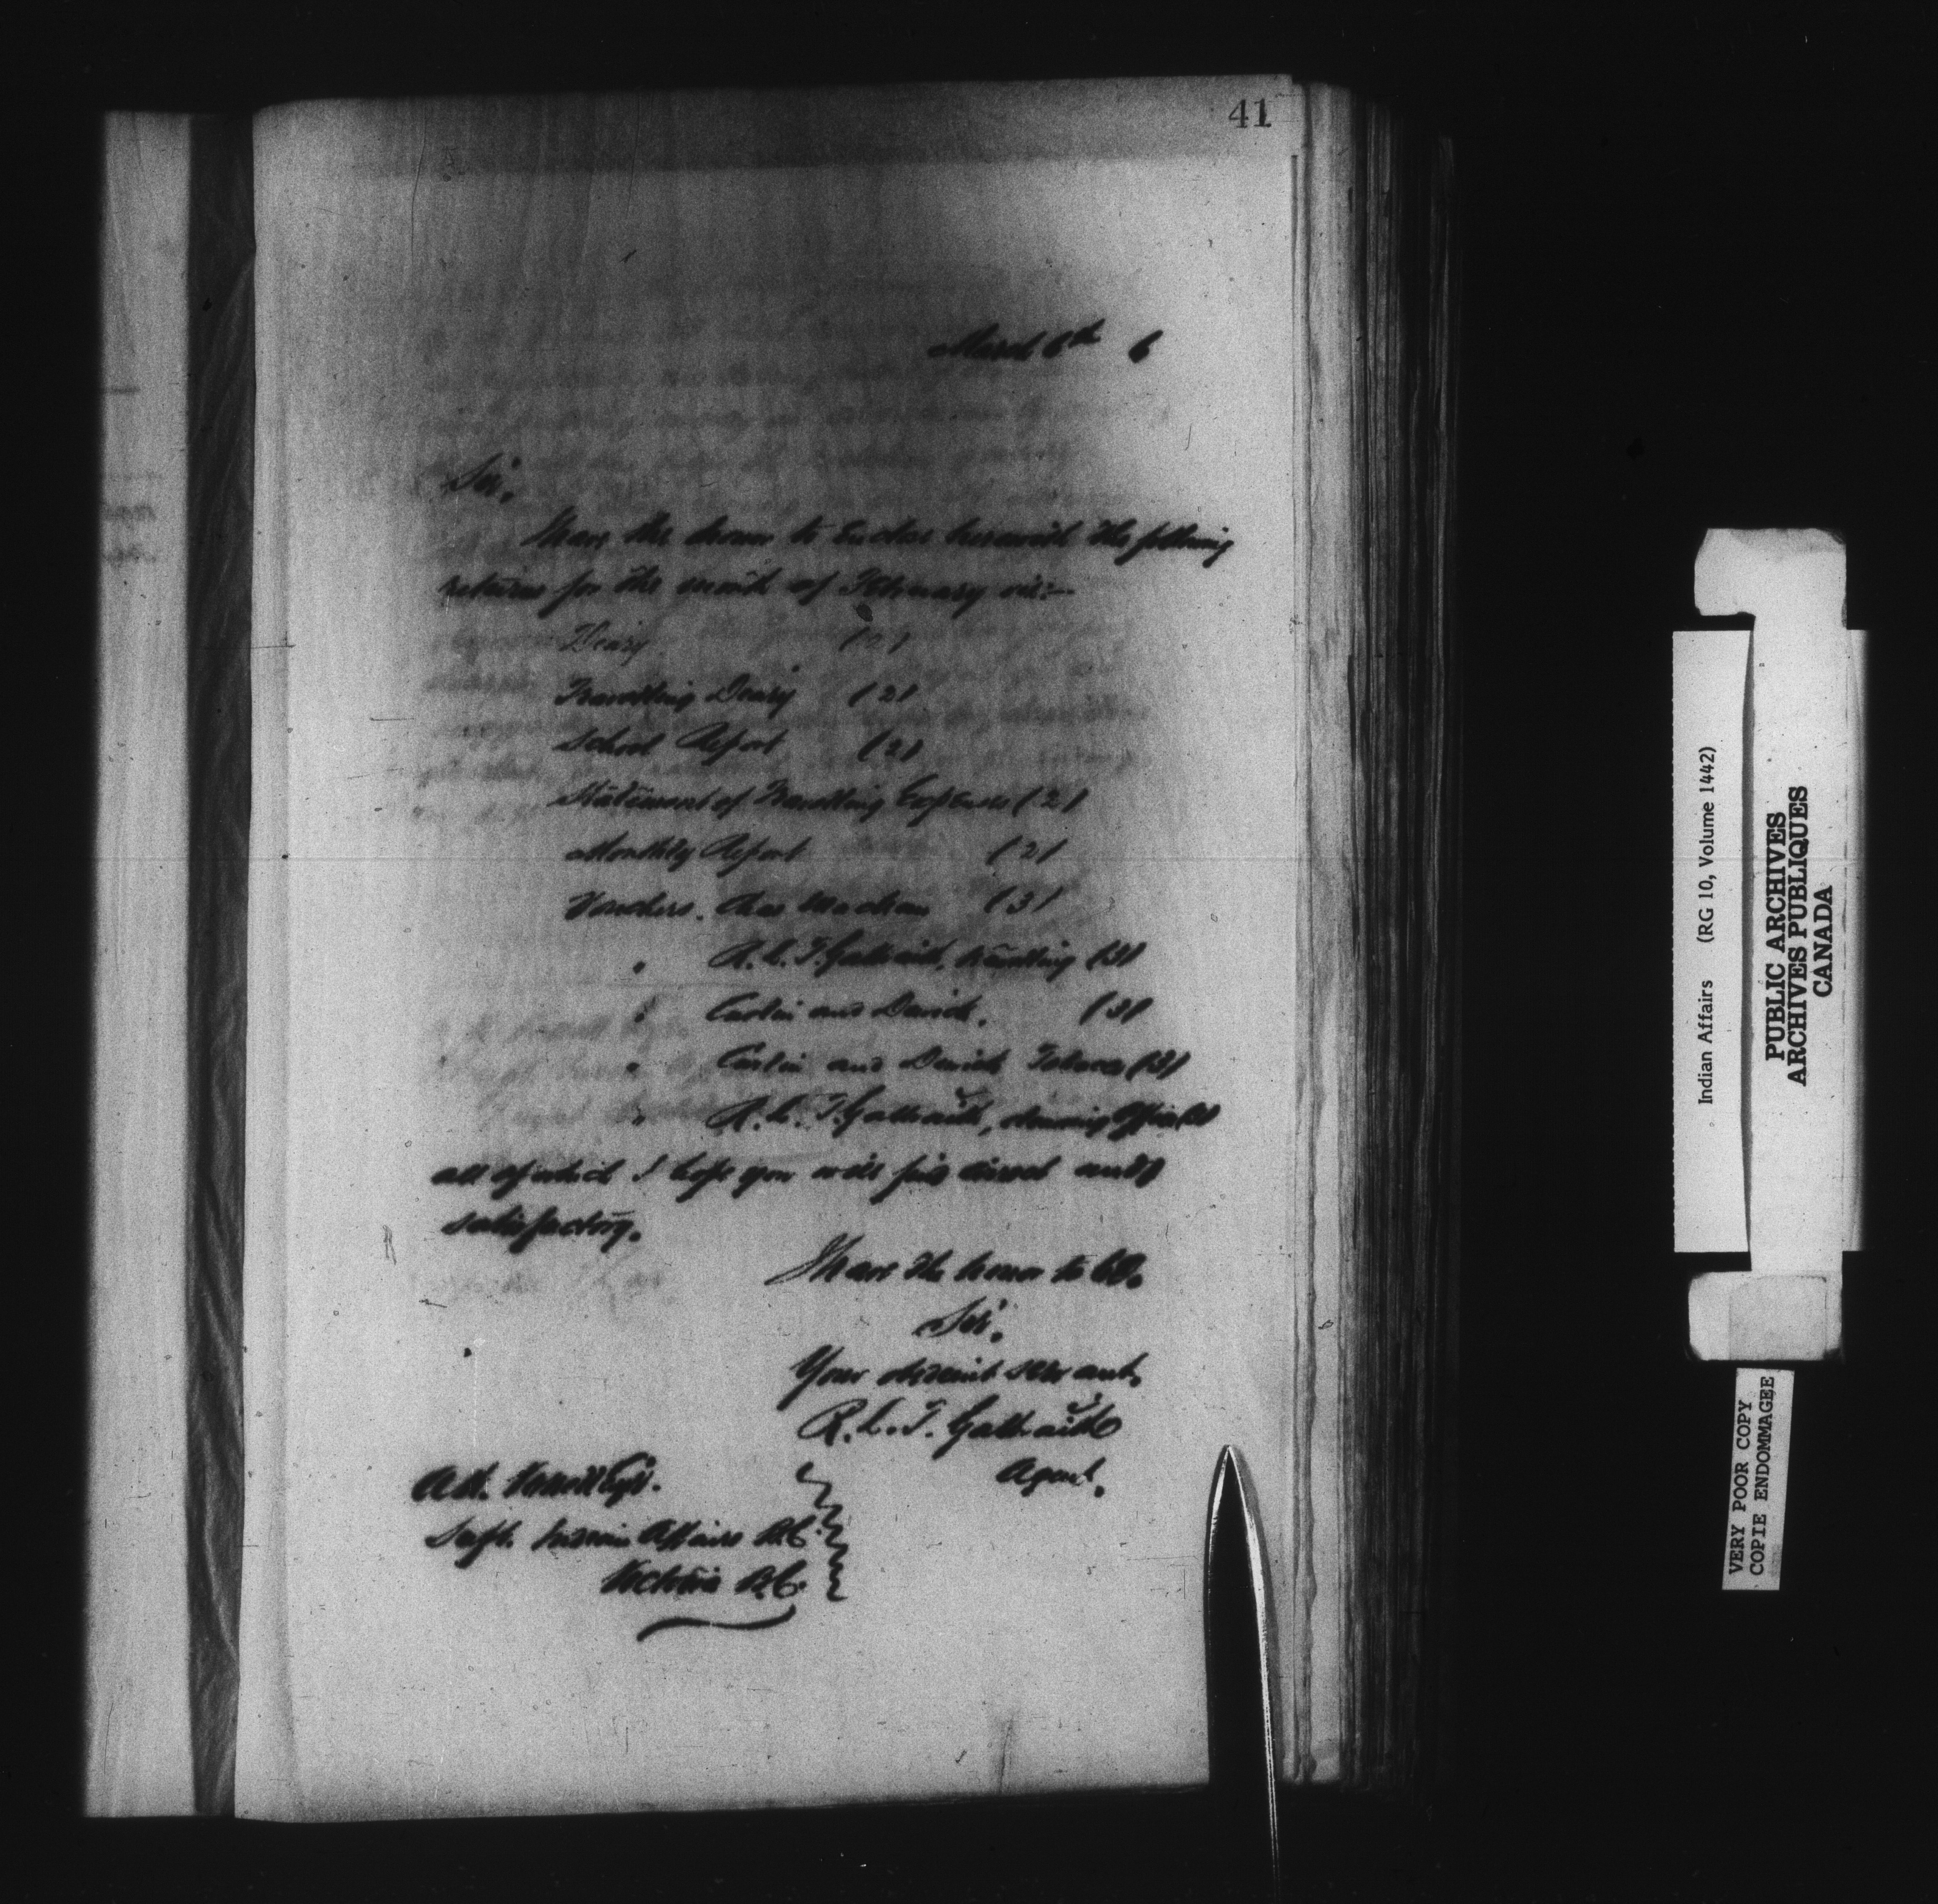 41
March 6th 6
Sir,
I have the honor to enclose herewith the following
returns for the month of February viz:-
Diary (2)
Travelling Diary (2)
School Report (2)
Statement of Travelling Expenses (2)
Monthly Report (2)
Vouchers. Chas (3)
" R. L. T. Galbraith, travelling (3)
" Carlin and Durick. (3)
" Carlin and Durick Tobacco (3)
" R. L. T. Galbraith,
all of which I hope you will find correct and
satisfactory.
I have the honor to be.
Sir.
Your obedient servant,
R. L. T. Galbraith
Agent.
A. W. Vowell Esqr.
Supt. Indian Affairs B.C.
Victoria B.C.
Indian Affairs (RG 10, Volume 1442)
PUBLIC ARCHIVES
ARCHIVES PUBLIQUES
CANADA
VERY POOR COPY
COPIE ENDOMMAGEE